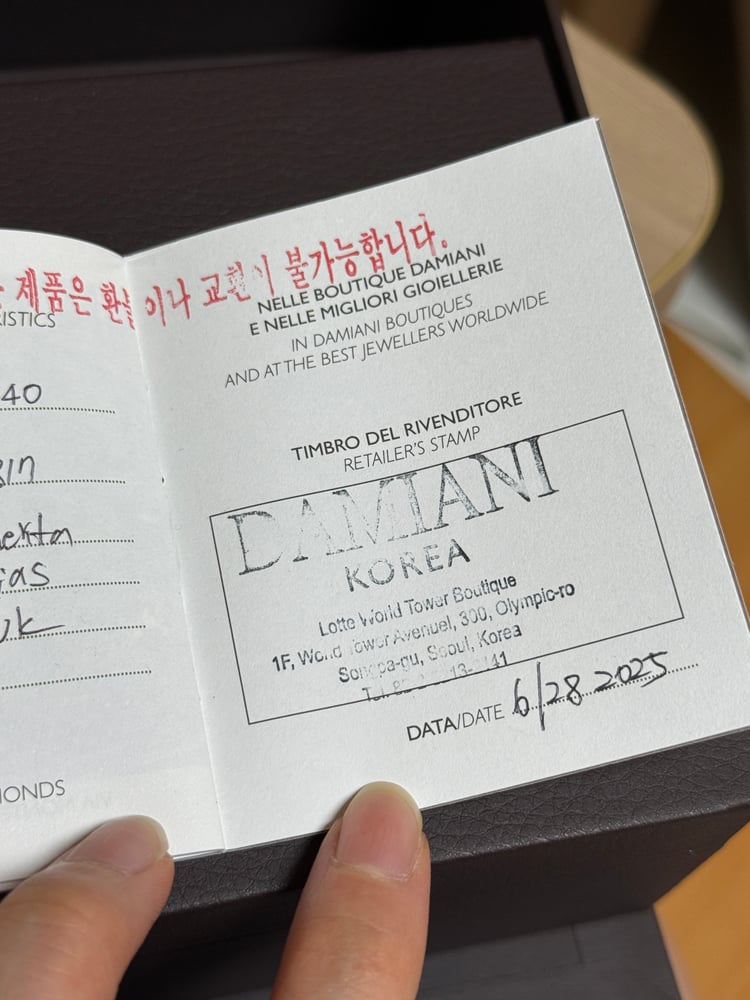 제품은 환불이나 교환이 불가능합니다.
40
NELLE BOUTIQUE DAMIANI
E NELLE MIGLIORI GIOIELLERIE
IN DAMIANI BOUTIQUES
AND AT THE BEST JEWELLERS WORLDWIDE
TIMBRO DEL RIVENDITORE
RETAILER'S STAMP
DAMIANI
KOREA
Lotte World Tower Boutique
1F, World Tower Avenuel, 300, Olympic-ro
Songpa-gu, Seoul, Korea
DATA/DATE 6/28 2025